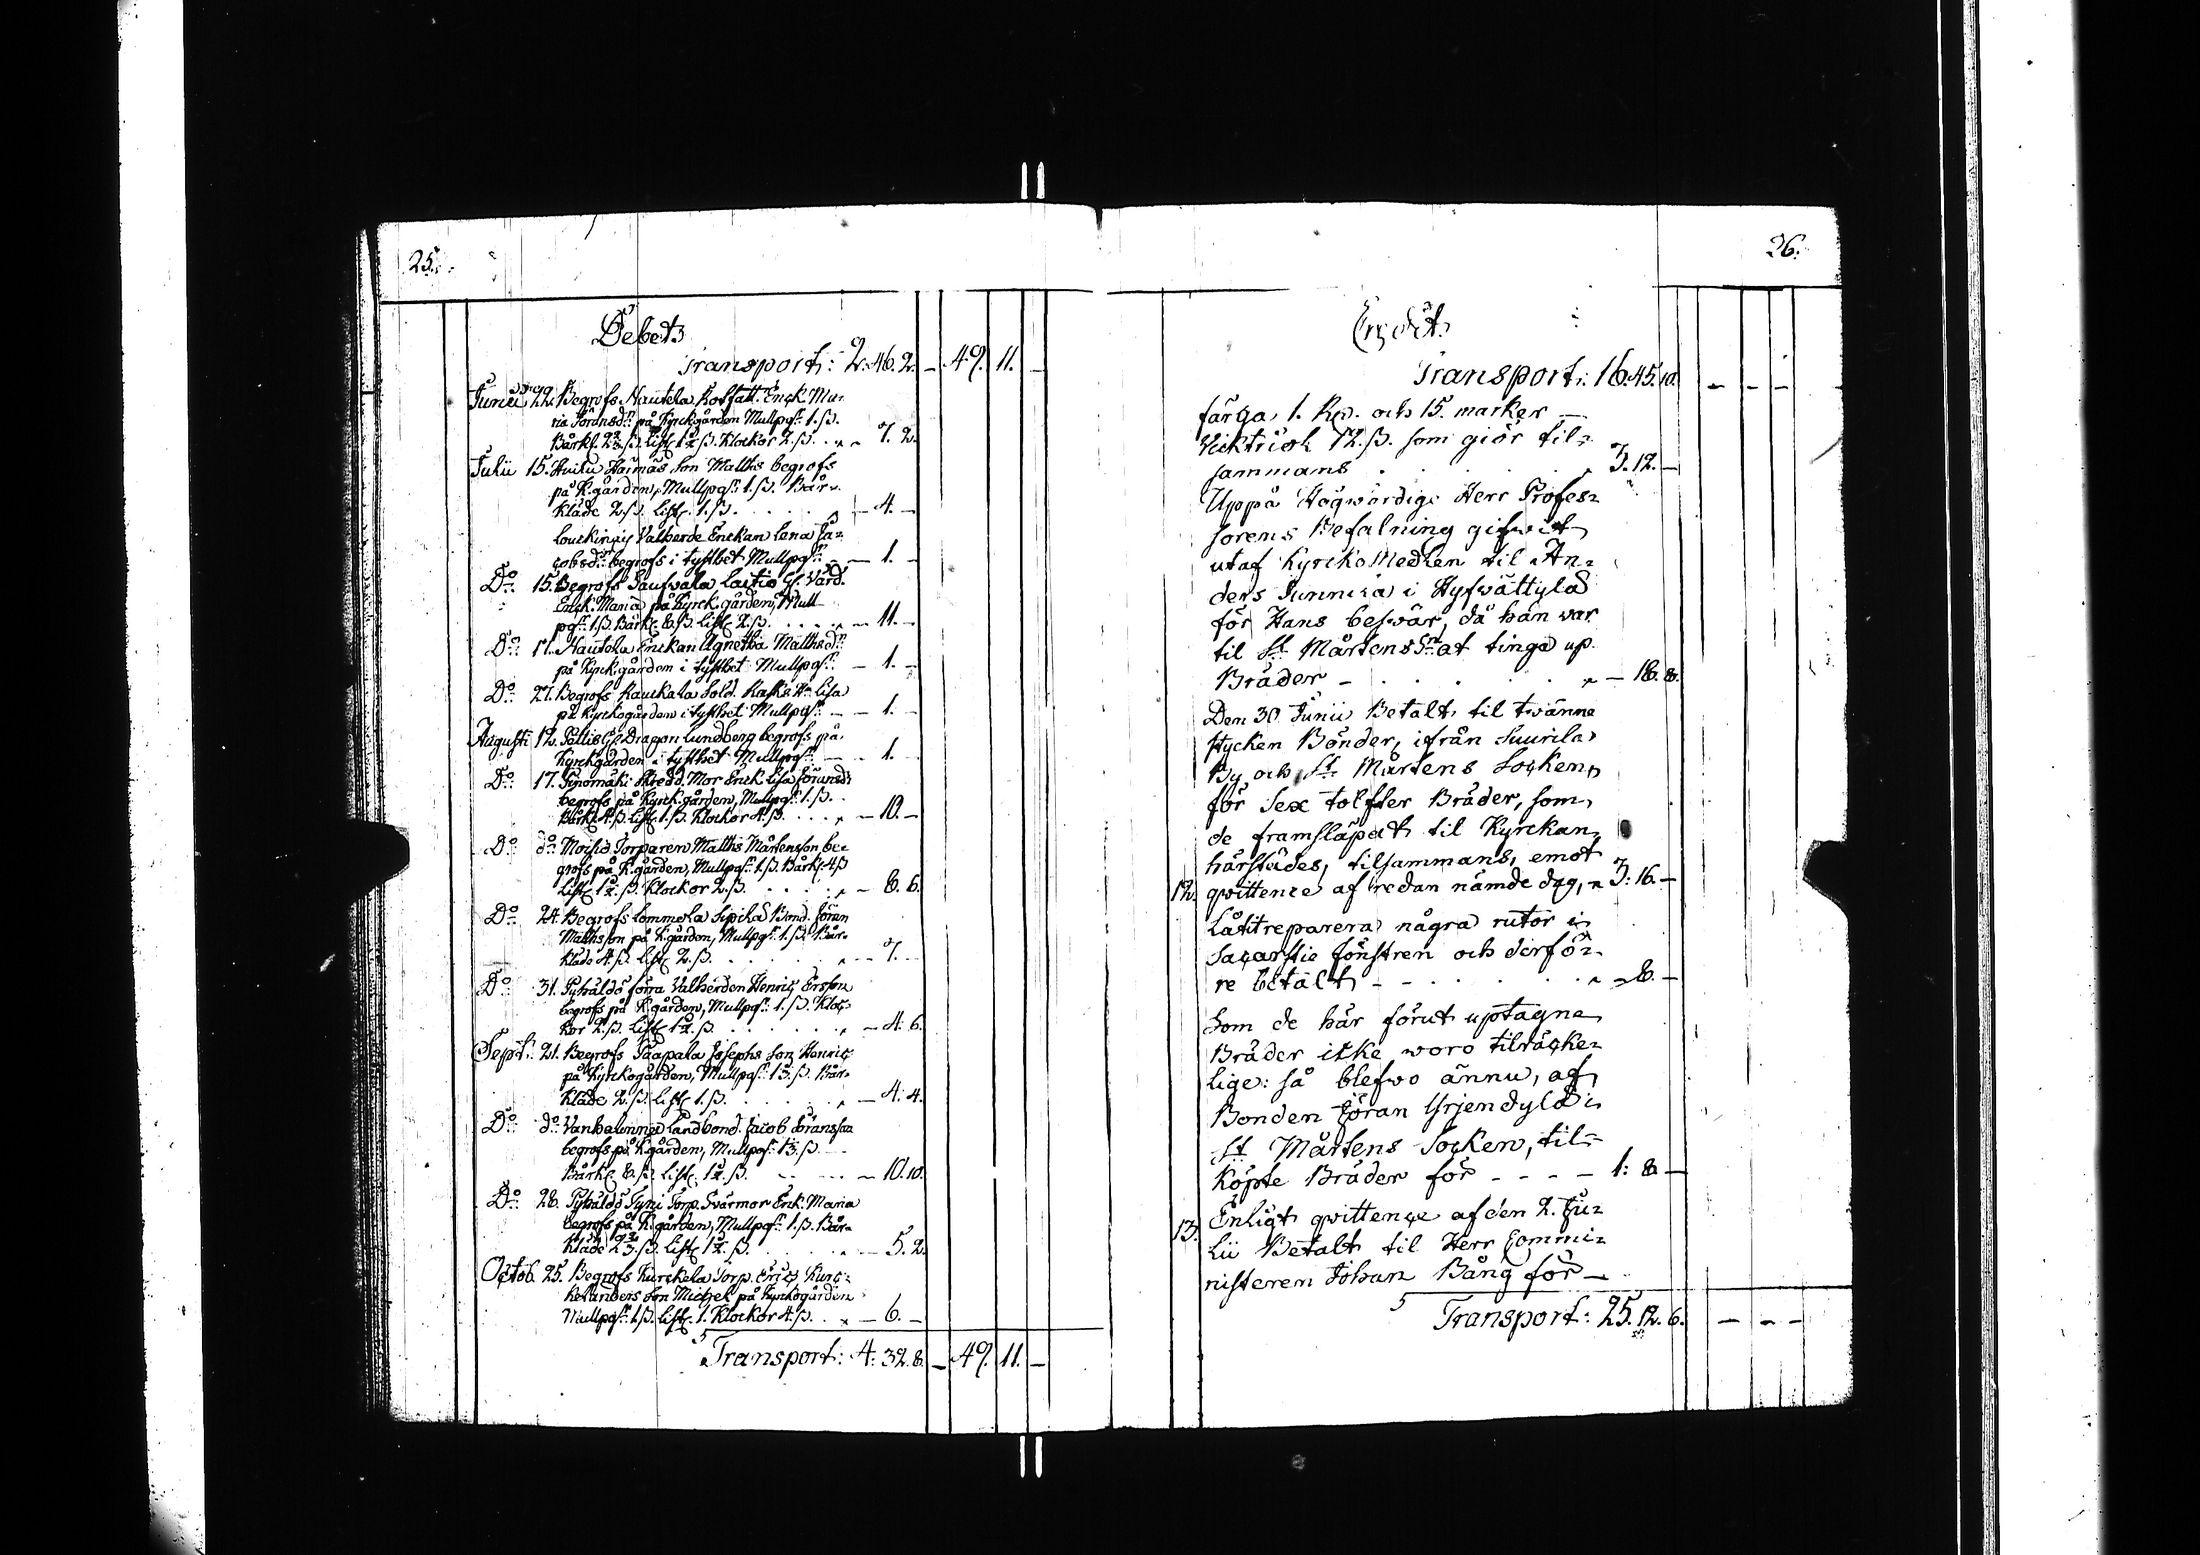 25.
Debet
Transport: 2.46.2. - 49. 11. -
Junii 22. Begrofs Nautela Enck. Ma-
ria på Kyrckogården Mullpg:r 1.ß.
Bårkl. 2 2/3 ß. List. 1 1/2 ß. Klockor 2.ß. - 7. 2.
Julii 15. Huiku Harmas Son Matths begrofs
på K.gården, Mullpg:r 1.ß. Bår-
kläde 2.ß. List. 1.ß. - 4. -
Enckan Lena Ja-
cobsd:r begrofs i tysthet Mullpg:r - 1. -
D:o 15. Begrofs
Enck. Maria på Kyrck.gården, Mull
pg:r 1.ß. Bårkl. 8.ß. List. 2.ß. - 11. -
D:o 17. Nautela Enckan Agnetha Mattsd:r
på Kyrckgården i tysthet Mullpg:r - 1. -
D:o 27. Begrofs Raukala Sold. Rasks H. Lisa
på Kyrckogården i tysthet Mullpg:r - 1. -
Augusti 12. Dragon Lundberg begrofs på
Kyrckgården i tysthet Mullpg:r - 1. -
D:o 17. Mor Enck. Lisa Göransd:r
begrofs på Kyrck.gården, Mullpg:r 1.ß.
Bårkl. 4.ß. List. 1.ß. Klockor 4.ß. - 10. -
D:o d:o Moisio Torparen Matths Mårtensson be-
grofs på K.gården, Mullpg:r 1.ß. Bårkl. 4.ß
List. 1 1/2.ß. Klockor 2.ß. - 8. 6.
D:o 24. Begrofs Lommola Sipilä Bond. Jöran
Mathsson på K.gården, Mullpg:r 1.ß. Bår-
kläde 4.ß. List. 2.ß. - 7. -
D:o 31. Pyhäldö förra Valherden Henric Ersson
begrofs på K.gården, Mullpg:r 1.ß. Kloc-
kor 2.ß. List. 1 1/2.ß. - 4. 6.
Sept: 21. Begrofs Paapala Josephs Son Henric
på Kyrckogården, Mullpg:r 1 1/3.ß. Bår-
kläde 2.ß. List. 1.ß. - 4. 4.
D:o d:o Vanhalinna Landbond. Jacob Göransson
begrofs på K.gården, Mullpg:r 1 1/3.ß.
Bårkl. 8.ß. List. 1 1/2.ß. - 10. 10.
D:o 28. Pyhäldö Torp. Svärmor Enck. Maria
begrofs på K.gården, Mullpg:r 1.ß. Bår-
kläde 2 2/3.ß. List. 1 1/2.ß. - 5. 2.
Octob. 25. Begrofs Kurckela Torp. Eric
Son Michel på Kyrckogården
Mullpg:r 1.ß. List. 1. Klockor 4.ß. - 6. -
Transport: 4: 32. 8. - 49. 11. -
26.
Credit.
Transport: 16.45.10. - - -
färga, 1. och 15. marker
Vicktriol 12.ß. som giör til-
sammans 3. 12. -
Uppå Högwördige Herr Profes-
sorens Befalning gifwit
utaf KyrckoMedlen til An-
ders Junnila i Hyfwättylä
för Hans beswär, då han war
til S:t Mårtens S:n at tinga up
Bräder - - 18. 8.
Den 30 Junii Betalt til twänne
stycken Bönder, ifrån Suurila
By och S:t Mårtens Socken,
för Sex tolfter Bräder, som
de framsläpat til Kyrckan
härstädes, tilsammans, emot
12. qwittence af redan nämde dag, 3: 16. -
Låtit reparera några rutor i
Sacarstie fönstren och derfö-
re betalt - - 8. -
Som de här förut uptagne
Bräder icke woro tilräcke-
lige: så blefwo ännu, af
Bonden Jöran Yrjendylä i
S:t Mårtens Socken, til-
köpte Bräder för - - - 1: 8. -
13. Enligt qwittence af den 2. Ju-
lii Betalt til Herr Commi-
nisteren Johan Bång för -
Transport: 25. 12. 6. - - -